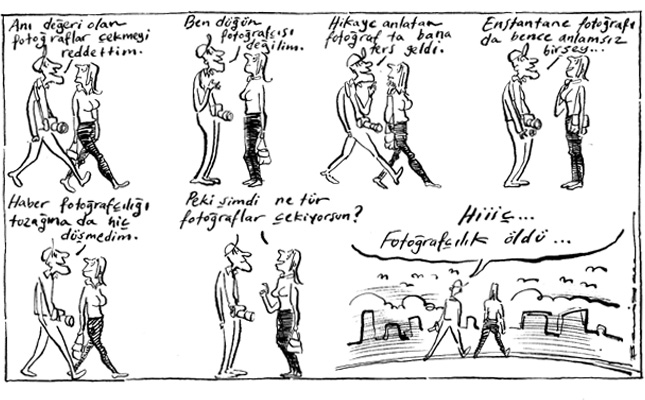 Anı değeri olan
fotoğraflar çekmeyi
reddettim.
Ben düğün
fotoğrafçısı
değilim.
Hikaye anlatan
fotoğraf ta bana
ters geldi.
Enstantane fotoğrafı
da bence anlamsız
birşey...
Haber fotoğrafçılığı
tozağına da hiç
düşmedim.
Peki şimdi ne tür
fotoğraflar çekiyorsun?
Hiiiç...
Fotoğrafçılık öldü...